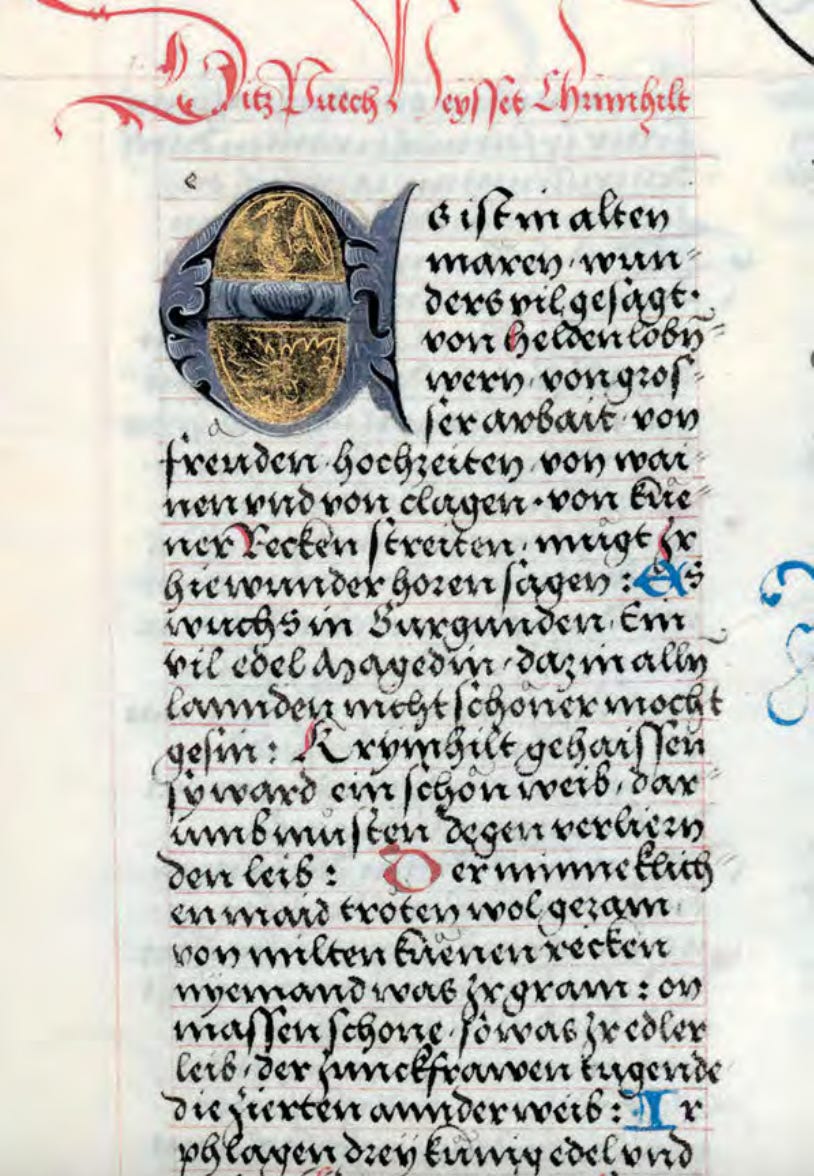 Ditz Puech Heysset Chrimhilt
e
Es ist in alten
maren · wun⸗
ders vil gesagt·
von helden loby̅⸗
wern · von gros⸗
ser arbait · von
frewden · hochzeiten · von wai⸗
nen vnd von clagen · von küe⸗
ner Recken streiten · mügt Jr
hie wunder horen sagen : Es
wuchs in Burgunden · Ein
vil edel Magedin · daz in alln
lannden nicht schöner mocht
gesin : Krymhilt gehaissen
sy ward ein schön weib · dar⸗
umb musten degen verliern
den leib : Der minneklich⸗
en maid troten wol gezam
von milten küenen recken
nyemand was Jr gram : on
massen schone · so was Jr edler
leib · der junckfrawen tugende
die zierten annder weib : Ir
phlagen drey kunig edel vnd